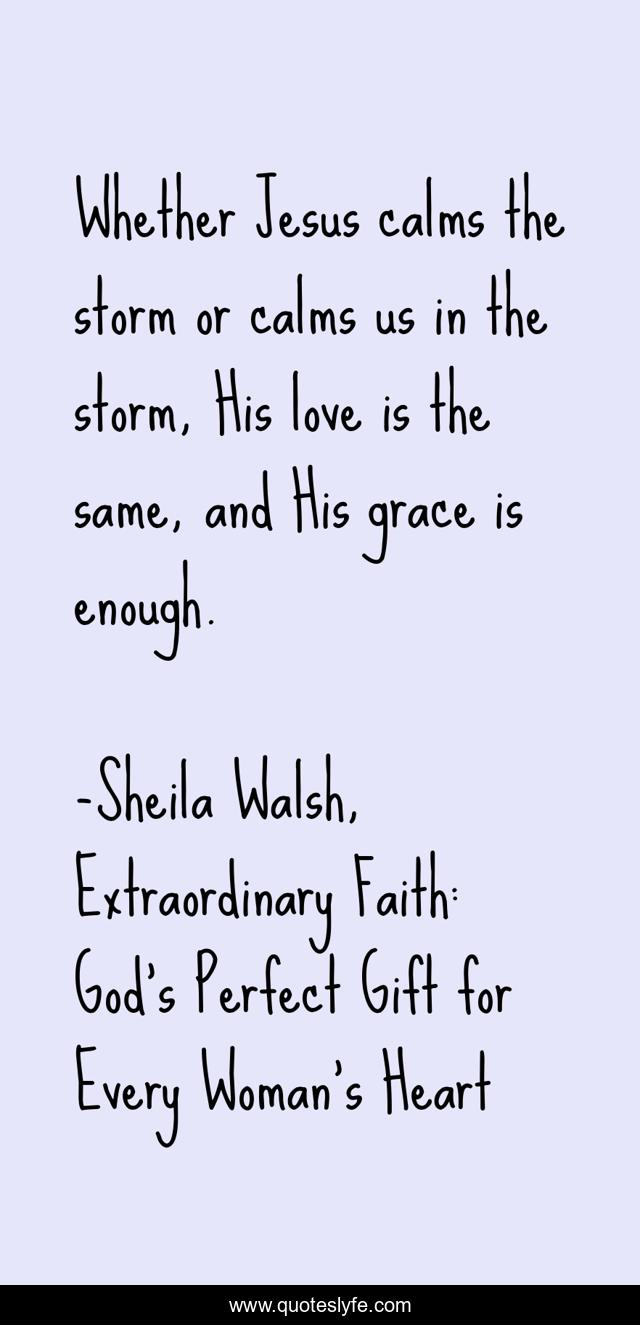 Whether Jesus calms the
storm or calms us in the
storm, His love is the
same, and His grace is
enough.
-Sheila Walsh,
Extraordinary Faith:
God's Perfect Gift for
Every Woman's Heart
www.quoteslyfe.com